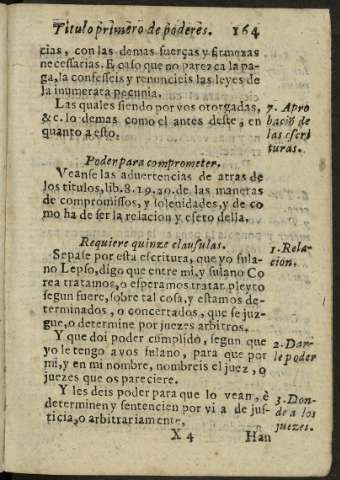 Titulo primero de poderes. 164
cias, con las demas fuerças y firmezas
necessarias. E caso que no parezca la pa-
ga, la confesseis y renuncieis las leyes de
la inumerata pecunia.
Las quales siendo por vos otorgadas,
&c. lo demas como el antes deste, en
quanto a esto.
7. Apro
baciõ de
las escri
turas.
Poder para comprometer.
Veanse las aduertencias de atras de
los titulos, lib. 8. 19. 20. de las maneras
de compromissos, y solenidades, y de co
mo ha de ser la relacion y efeto della.
Requiere quinze clausulas.
Sepase por esta escritura, que yo fula-
no Lepso, digo que entre mi, y fulano Co
rea tratamos, o esperamos tratar pleyto
segun fuere, sobre tal cosa, y estamos de-
terminados, o concertados, que se juz-
gue, o determine por juezes arbitros.
1. Rela-
cion.
Y que doi poder cumplido, segun que
yo le tengo a vos fulano, para que por
mi, y en mi nombre, nombreis el juez, o
juezes que os pareciere.
2. Dar-
le poder
Y les deis poder para que lo vean, è
determinen y sentencien por via de jus-
ticia, o arbitrariamente,
3. Don-
de a los
juezes.
X 4 Han